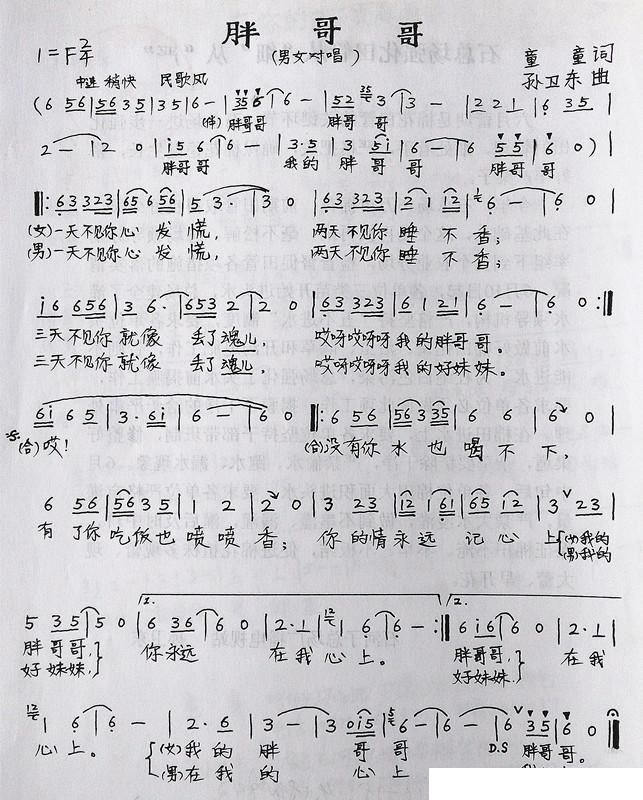 胖哥哥
(男女对唱)
1=F 2/4
童童词
孙卫东曲
中速 稍快 民歌风
(6 56|5635|35|6-|356|6-|52 3|3-|221|6 35|
(伴)胖哥哥 胖哥 哥
2-|20|i56|6-|3·5|3 5i|6-|6 55|60)|
胖哥哥 我的 胖哥 哥 胖哥 哥
‖:63 323|65 65|5 3·|30|63 323|2 i 12|6-|60|
(女)一天不见你心发慌, 两天不见你睡不香;
(男)一天不见你心发慌, 两天不见你睡不香;
i6 656|36·|653 2|20|63 323|6 121|6-|60:‖
三天不见你就像丢了魂儿, 哎呀哎呀呀我的胖哥哥。
三天不见你就像丢了魂儿, 哎呀哎呀呀我的好妹妹。
6i 65|3·6i|6-|60‖:6 56|56 335|66|60|
(合)哎! (合)没有你水也喝不下,
6 56|5635|21|20|2 23|12 161|65 12|3 23|
有了你吃饭也喷喷香; 你的情永远记心上 (女)我的
(男)我的
5 35|50|6 36|60|2·1|16|6-:‖6i6|60|2·1|
1. 2.
胖哥哥, 你永远 在我心上。 胖哥哥, 在我
好妹妹, 好妹妹,
16|6-|2·6|3-|3 0i5|6-|6-|6 35|60‖
心上。 (女)我的胖哥哥 D.S 胖哥哥。
(男)在我的心上